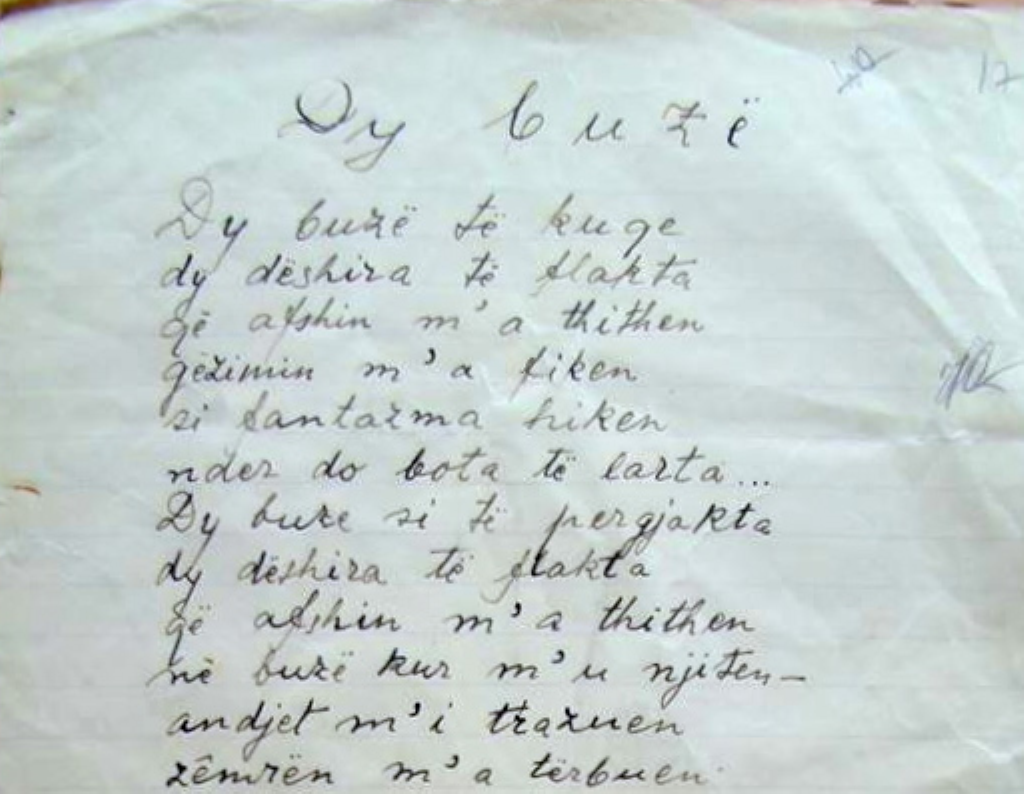 17
Dy buzë
Dy buzë të kuqe
dy dëshira të flakta
që afshin m'a thithen
gëzimin m'a fiken
si fantazma hiken
nder do bota të larta...
Dy buze si të pergjakta
dy dëshira të flakta
që afshin m'a thithen
në buzë kur m'u njiten—
andjet m'i trazuen
zêmrën m'a tërbuen